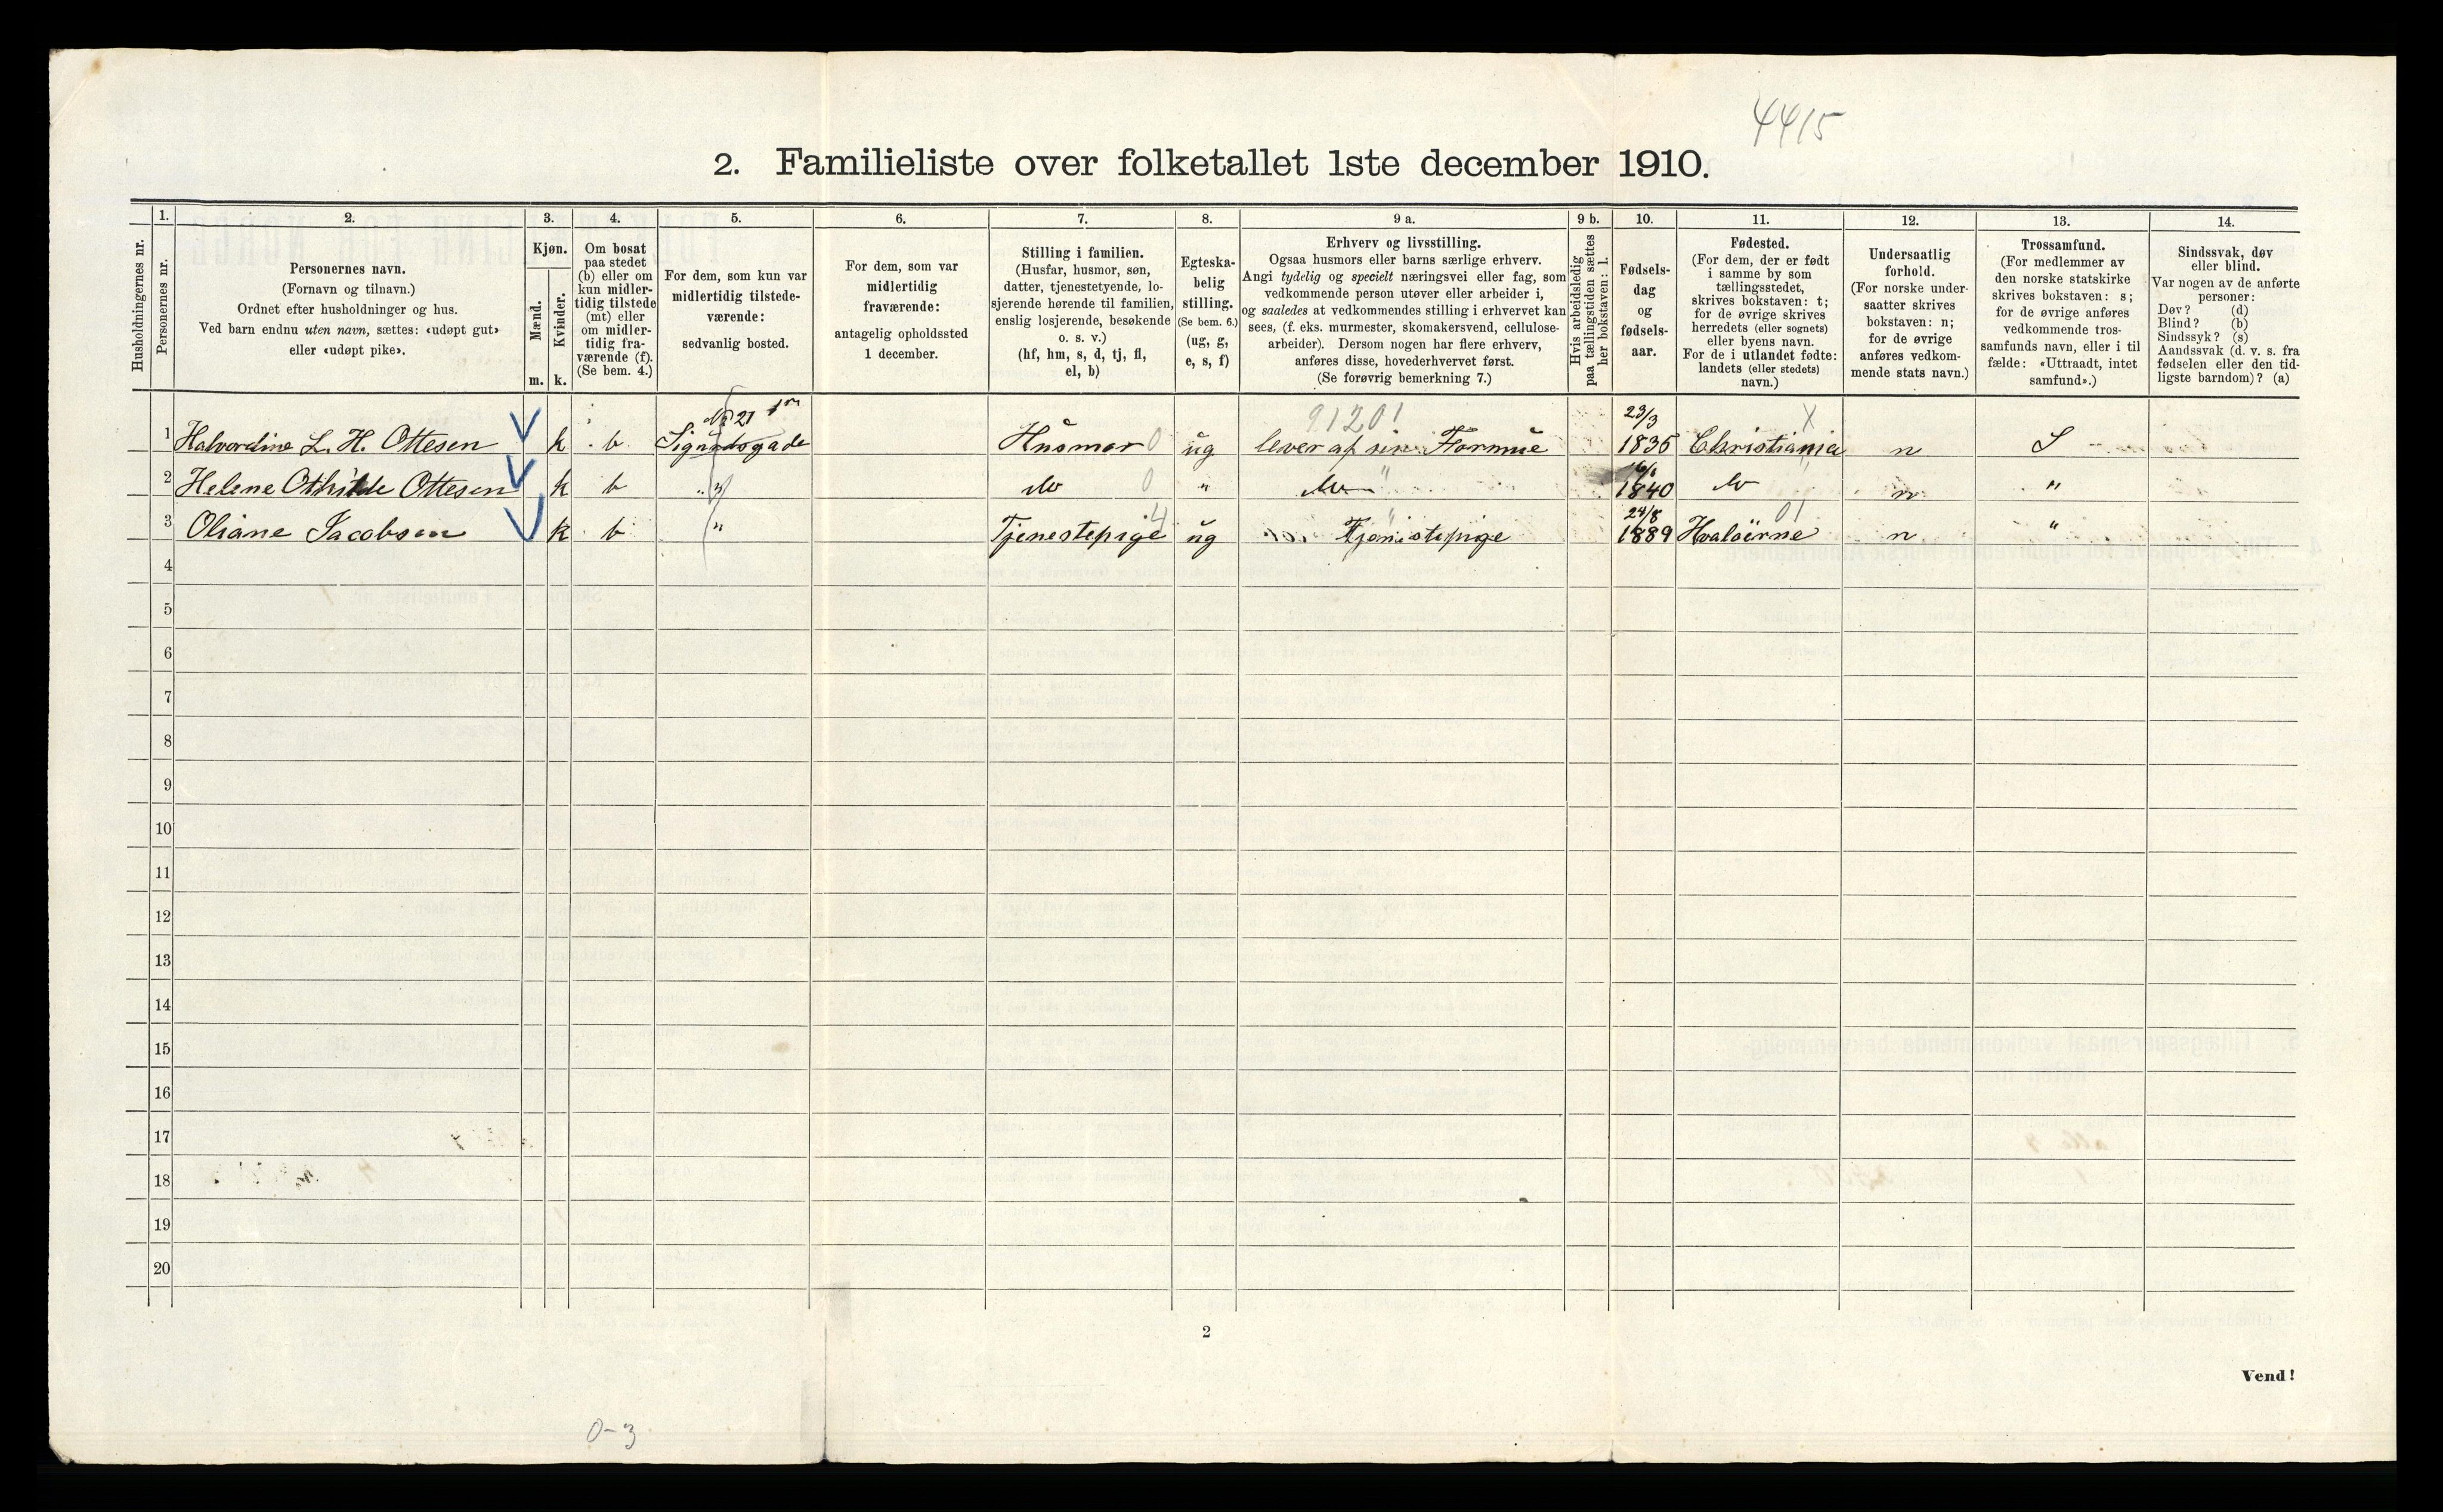 4415
2. Familieliste over folketallet 1ste december 1910.
Husholdningernes nr.
1.
Personernes nr.
2.
Personernes navn.
(Fornavn og tilnavn.)
Ordnet efter husholdninger og hus.
Ved barn endnu uten navn, sættes: «udøpt gut»
eller «udøpt pike».
3.
Kjøn.
Mænd.
m.
Kvinder.
k.
4.
Om bosat
paa stedet
(b) eller om
kun midler-
tidig tilstede
(mt) eller
om midler-
tidig fra-
værende (f).
(Se bem. 4.)
5.
For dem, som kun var
midlertidig tilstede-
værende:
sedvanlig bosted.
6.
For dem, som var
midlertidig
fraværende:
antagelig opholdssted
1 december.
7.
Stilling i familien.
(Husfar, husmor, søn,
datter, tjenestetyende, lo-
sjerende hørende til familien,
enslig losjerende, besøkende
o. s. v.)
(hf, hm, s, d, tj, fl,
el, b)
8.
Egteska-
belig
stilling.
(Se bem. 6.)
(ug, g,
e, s, f)
9 a.
Erhverv og livsstilling.
Ogsaa husmors eller barns særlige erhverv.
Angi tydelig og specielt næringsvei eller fag, som
vedkommende person utøver eller arbeider i,
og saaledes at vedkommendes stilling i erhvervet kan
sees, (f. eks. murmester, skomakersvend, cellulose-
arbeider). Dersom nogen har flere erhverv,
anføres disse, hovederhvervet først.
(Se forøvrig bemerkning 7.)
9 b.
Hvis arbeidsledig
paa tællingstiden sættes
her bokstaven: l.
10.
Fødsels-
dag
og
fødsels-
aar.
11.
Fødested.
(For dem, der er født
i samme by som
tællingsstedet,
skrives bokstaven: t;
for de øvrige skrives
herredets (eller sognets)
eller byens navn.
For de i utlandet fødte:
landets (eller stedets)
navn.)
12.
Undersaatlig
forhold.
(For norske under-
saatter skrives
bokstaven: n;
for de øvrige
anføres vedkom-
mende stats navn.)
13.
Trossamfund.
(For medlemmer av
den norske statskirke
skrives bokstaven: s;
for de øvrige anføres
vedkommende tros-
samfunds navn, eller i til
fælde: «Uttraadt, intet
samfund».)
14.
Sindssvak, døv
eller blind.
Var nogen av de anførte
personer:
Døv? (d)
Blind? (b)
Sindssyk? (s)
Aandssvak (d. v. s. fra
fødselen eller den tid-
ligste barndom)? (a)
No 21 9120! 23/3 X
1 Halvordine L. H. Ottesen k b Sigurdsgade Husmor 0 ug lever af sin Formue 1835 Christiania n S
2 Helene Othilde Ottesen k b " do 0 " do 1840 do n "
24/8 01
3 Oliane Jacobsen k b " Tjenestepige 4 ug Tjenistepige 1889 Hvaløerne n "
4
5
6
7
8
9
10
11
12
13
14
15
16
17
18
19
20
2
Vend!
0-3